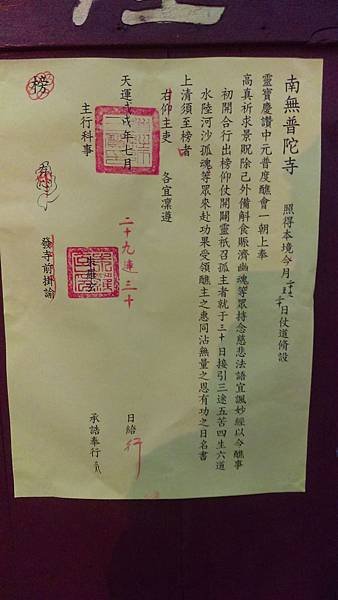 南無普陀寺
照得本境今月
日仗道脩設
靈寶慶讚中元普度醮會一朝上奉
高真祈求景貺除己外備斛食賑濟幽魂等眾持念慈悲法語宣諷妙經以今醮事
初開合行出榜仰仗開關靈祇召孤主者就于三十日接引三途五苦四生六道
水陸河沙孤魂等眾來赴功果受領醮主之惠同沾無量之恩有功之日名書
上清須至榜者
右仰主吏 各宜凜遵
天運戊戌年七月 二十九連三十 日給 行
主行科事 承誥奉行
榜 發寺前掛諭